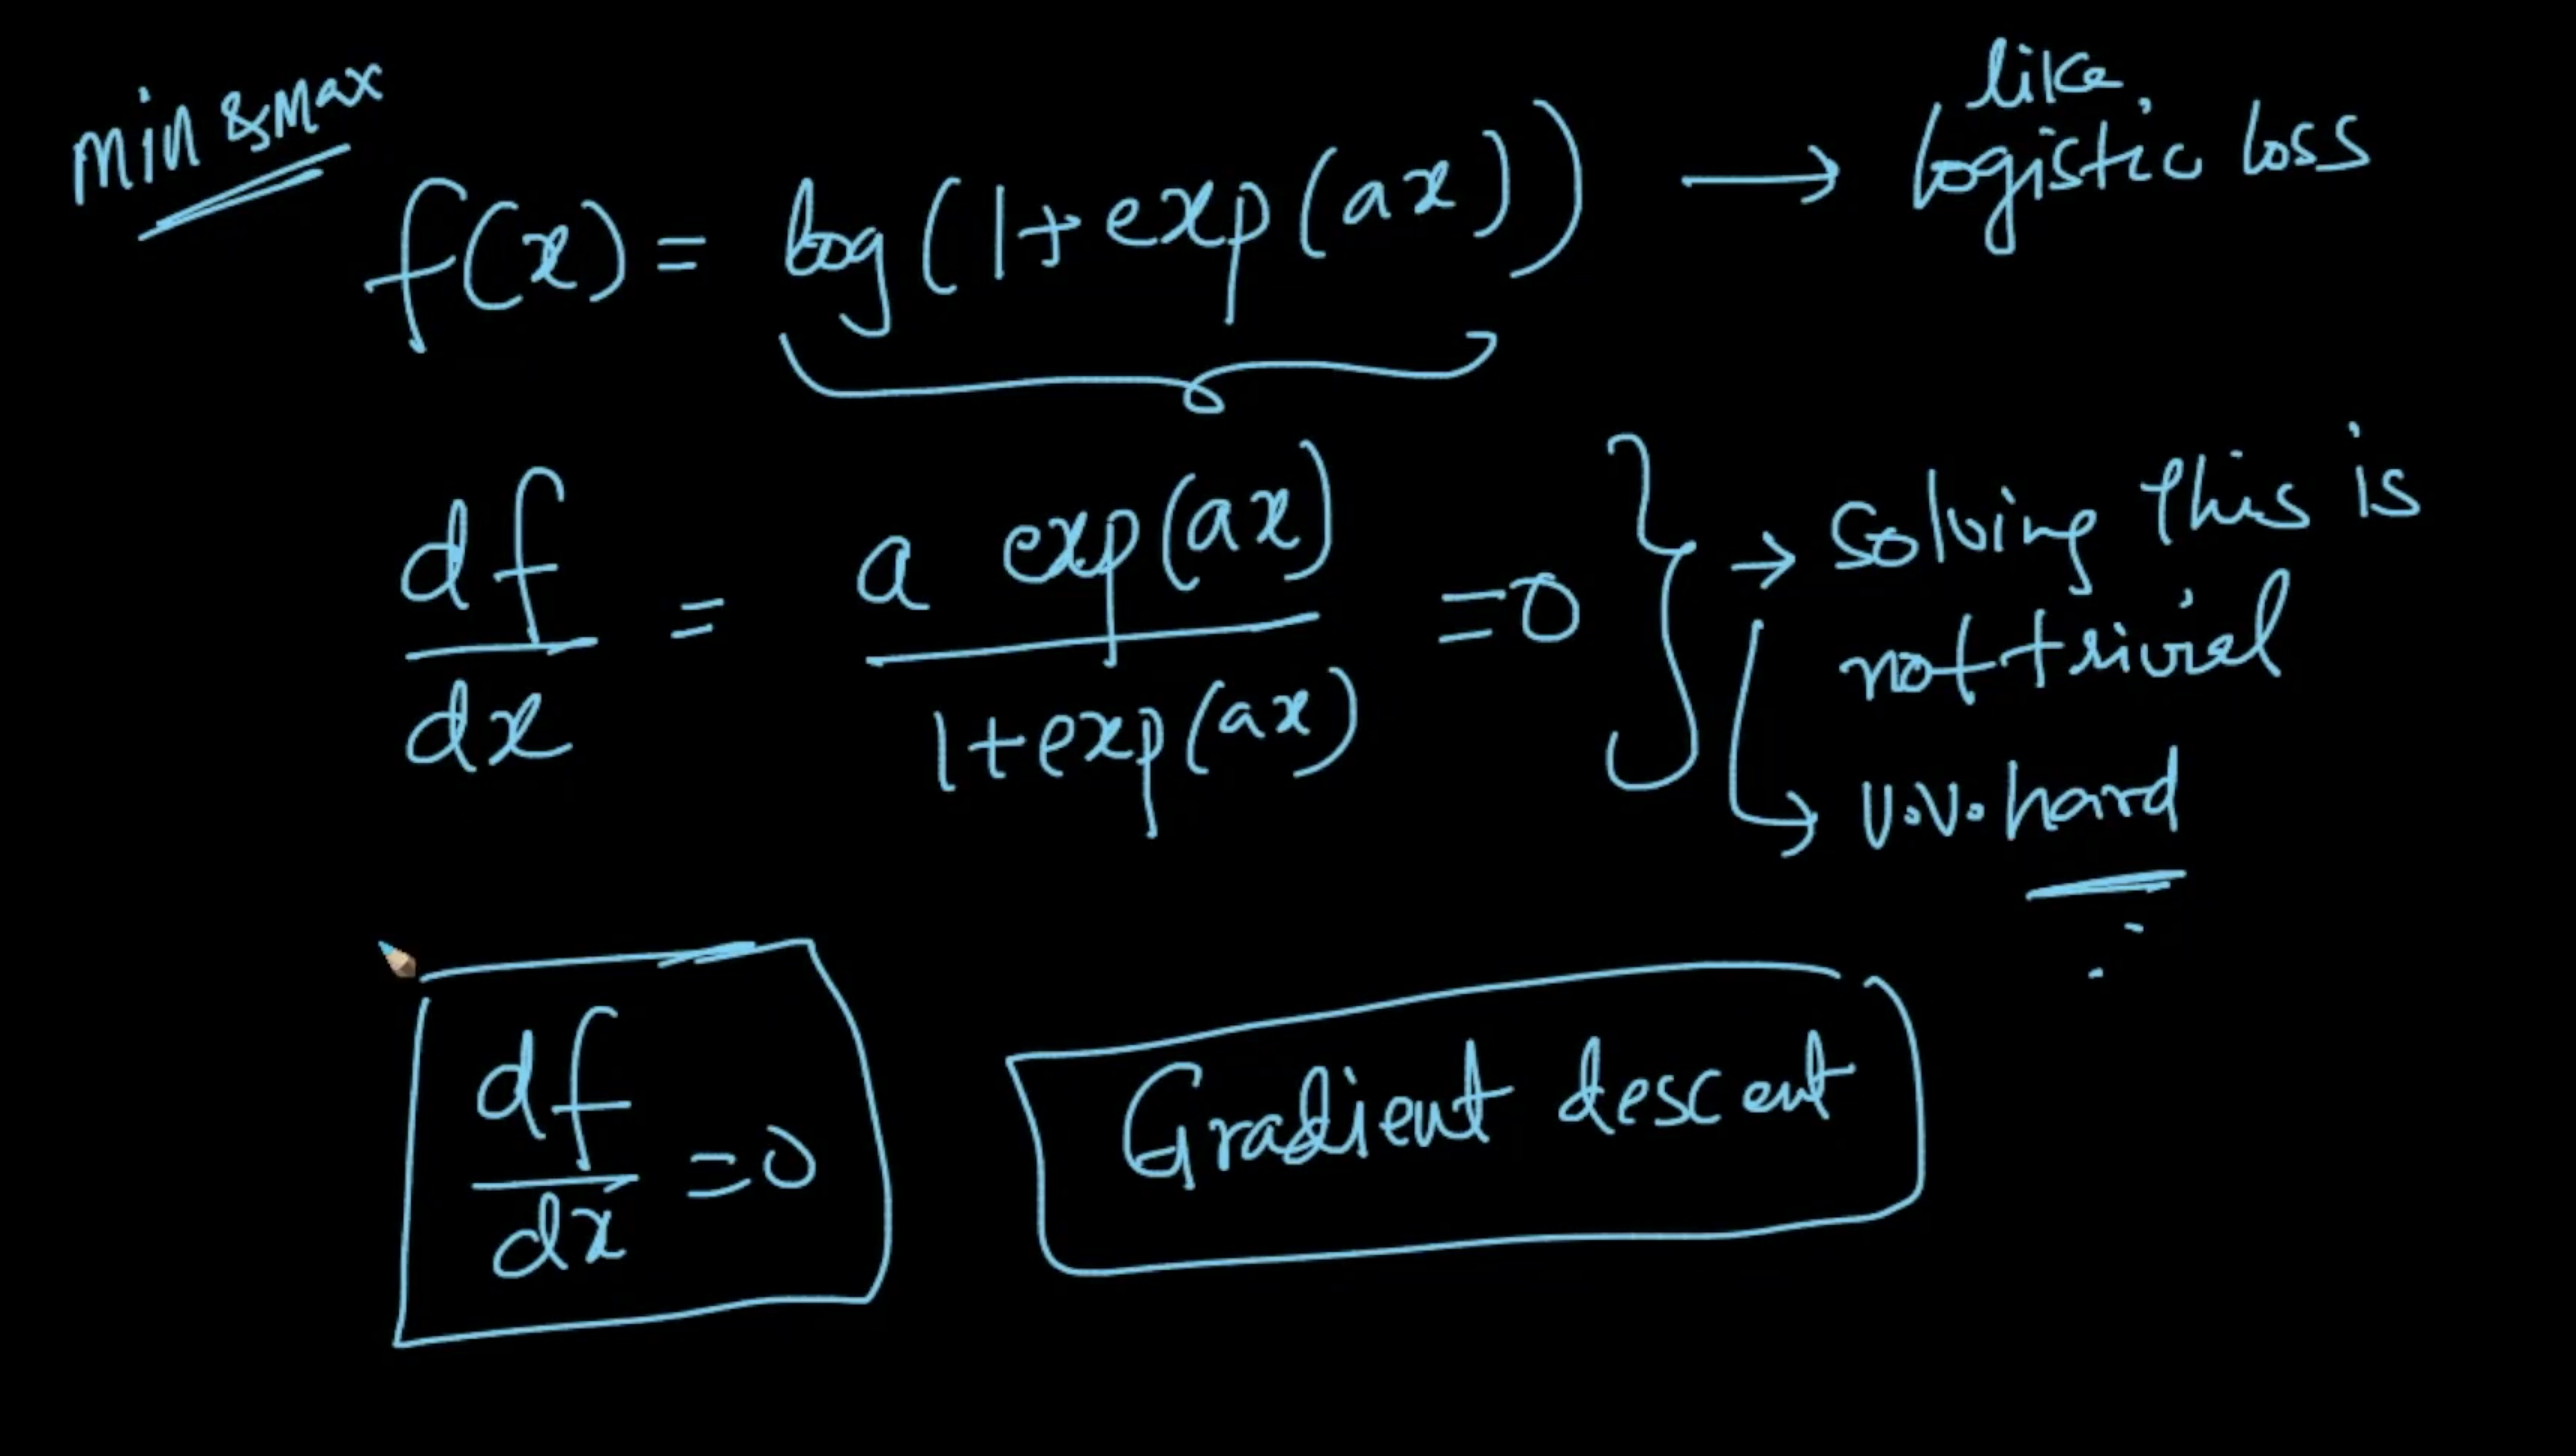 min & Max
f(x) = log(1+exp(ax)) → like logistic loss
df/dx = a exp(ax) / 1+exp(ax) =0 } → solving this is
not trivial
↳ v.v. hard
df/dx =0
Gradient descent